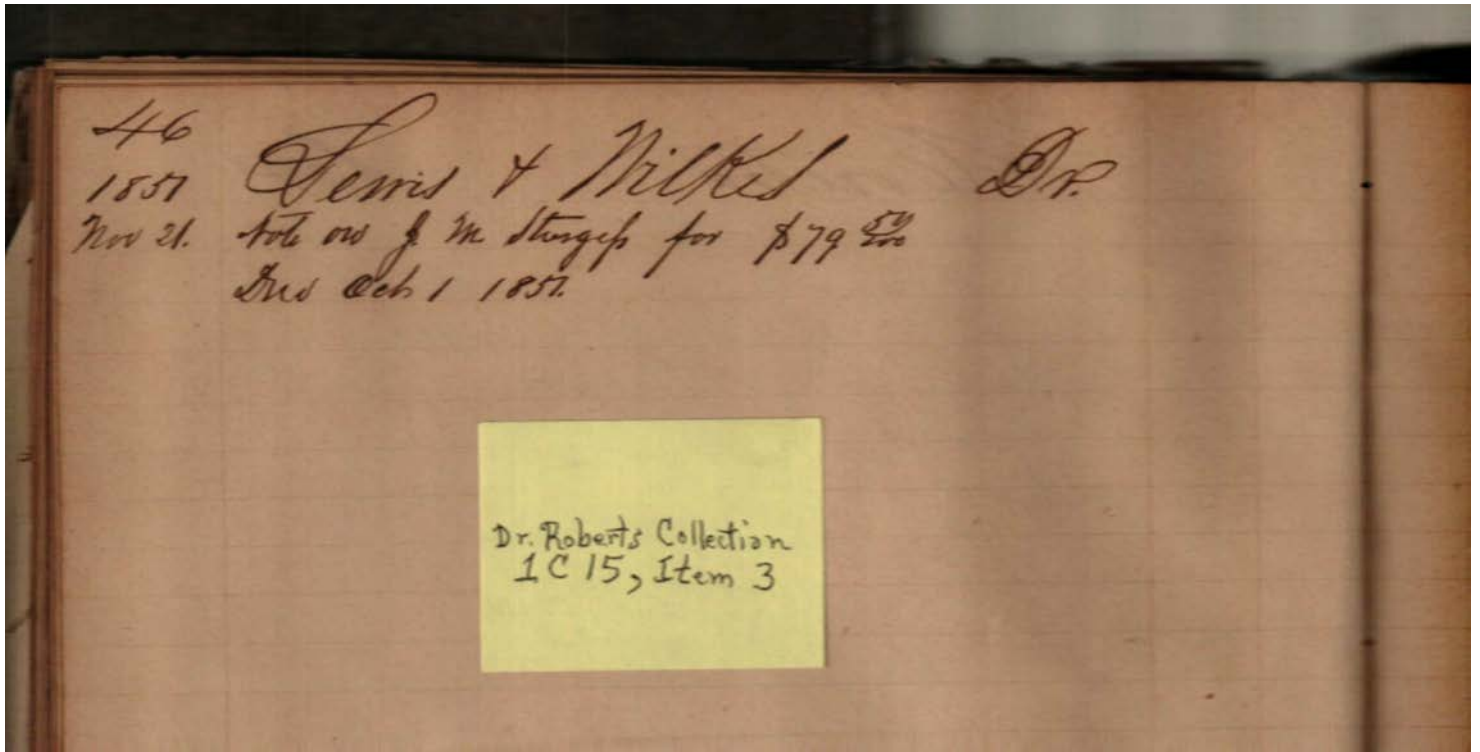 46
1857 Lewis & Wilkes Dr.
Nov 21. Note on J. M. Sturgess for $79 50/100
Due Oct 1 1857.
Dr. Roberts Collection
1C 15, Item 3